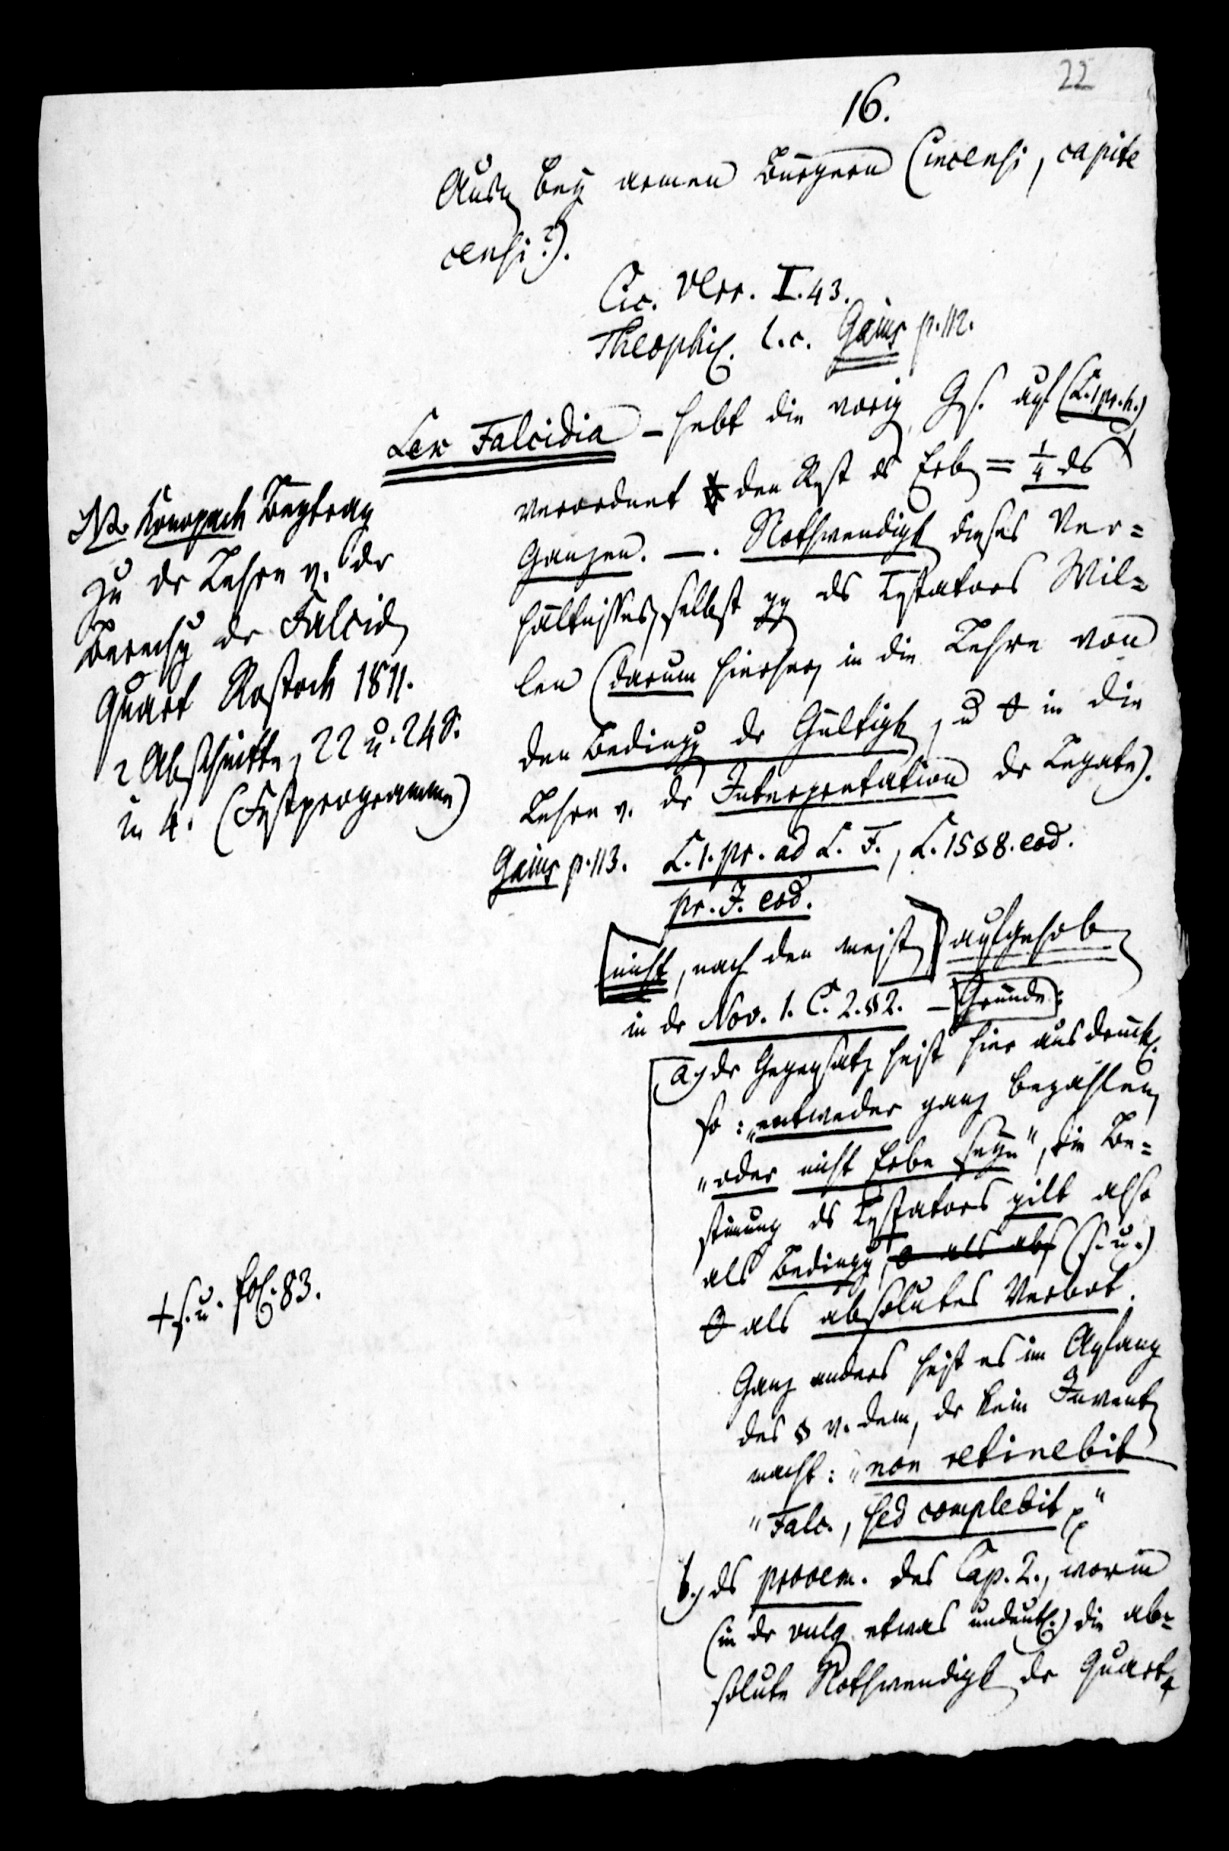 22
16.
Ausn. bey armen Bürgern (incensi, capite
censi?).
Cic. Verr. I. 43.
Theophil. l. c. Gaius p. 112.
Lex Falcidia – hebt die vorig. Gs. auf (L. 1 pr. h.)
verordnet den Rest des Erb. = 1/4 des
Ganzen. —. Nothwendigk. dieses Ver=
hältnisses, selbst gg. des Testators Wil=
len (darum hierher, in die Lehre von
den Beding. der Gültigk., u. 0 in die
Lehre v. der Interpretation der Legate).
Gaius p. 113. L. 1. pr. ad L. F., L. 15 § 8. eod.
pr. J. eod.
nicht, nach den meist. aufgehob.
in der Nov. 1. C. 2. § 2. – Gründe:
a.) der Gegensatz heist hier ausdrückl.
so: „entweder ganz bezahlen,
„oder nicht Erbe seyn“, die Be=
stimung des Testators gilt also
als Beding., 0 als abs (s. u.)
0 als absolutes Verbot.
Ganz anders heist es im Anfang
des § v. dem, der kein Invent.
macht: „non retinebit
„Falc., sed complebit“
b.) das prooem. des Cap. 2., worin
(in der vulg. etwas undeutl.) die ab=
solute Nothwendigk. der Quart
NB. Konopack Beytrag
zu der Lehre v. der
Berechg. der Falcid.
Quart Rostock 1811.
2 Abschnitte, 22 u. 24 S.
in 4. (Festprogramme)
+ s. u. fol. 83.